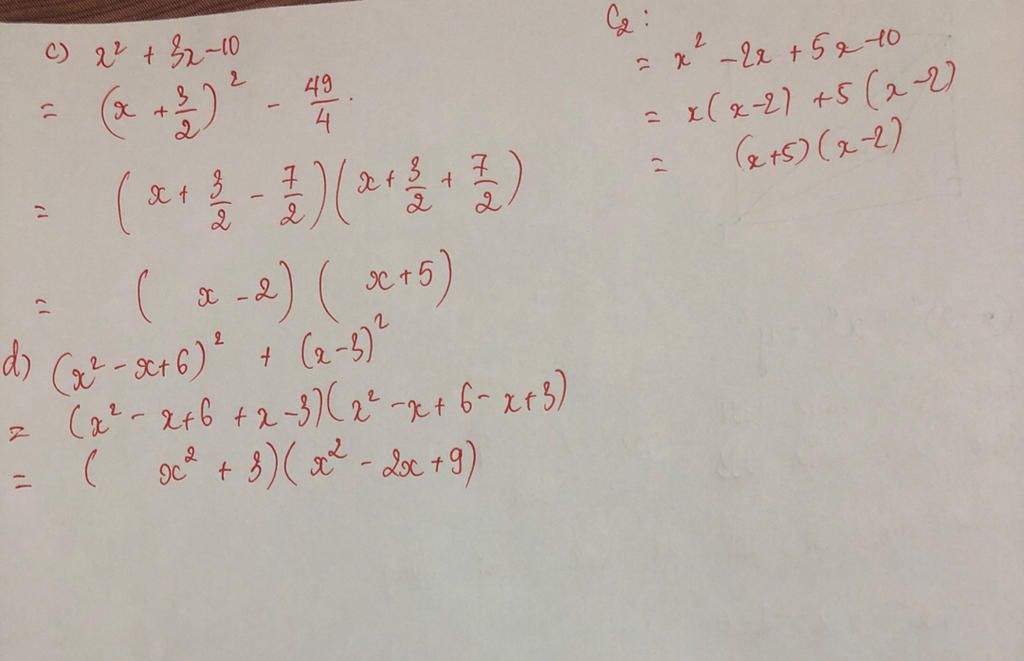 c) x² + 3x - 10
= (x + 3/2)² - 49/4.
= (x + 3/2 - 7/2)(x + 3/2 + 7/2)
= (x - 2)(x + 5)
d) (x² - x + 6)² + (x - 3)²
= (x² - x + 6 + x - 3)(x² - x + 6 - x + 3)
= (x² + 3)(x² - 2x + 9)
C₂ :
= x² - 2x + 5x - 10
= x(x - 2) + 5(x - 2)
= (x + 5)(x - 2)